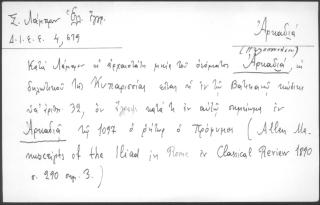 Σ. Λάμπρου Ἑλλ. ἔγγρ.
Δ.Ι.Ε.Ε. 4, 679
Ἀρκαδιά
(Πελοπόννησος)
Κατὰ Λάμπρον ἡ ἀρχαιοτάτη μνεία τοῦ ὀνόματος Ἀρκαδιά,
δηλωτικοῦ τῆς Κυπαρισσίας εἶναι ἡ ἐν τῷ Βατικανῷ κώδικι
ὑπ' ἀριθ. 32, ὃν ἔγραψε κατὰ τὸ ἐν αὐτῷ σημείωμα ἐν
Ἀρκαδιᾷ τῷ 1097 ὁ ῥήτωρ ὁ (Allen Ma-
nuscripts of the Iliad in Rome ἐν Classical Review 1890
σ. 290 σημ. 3.)